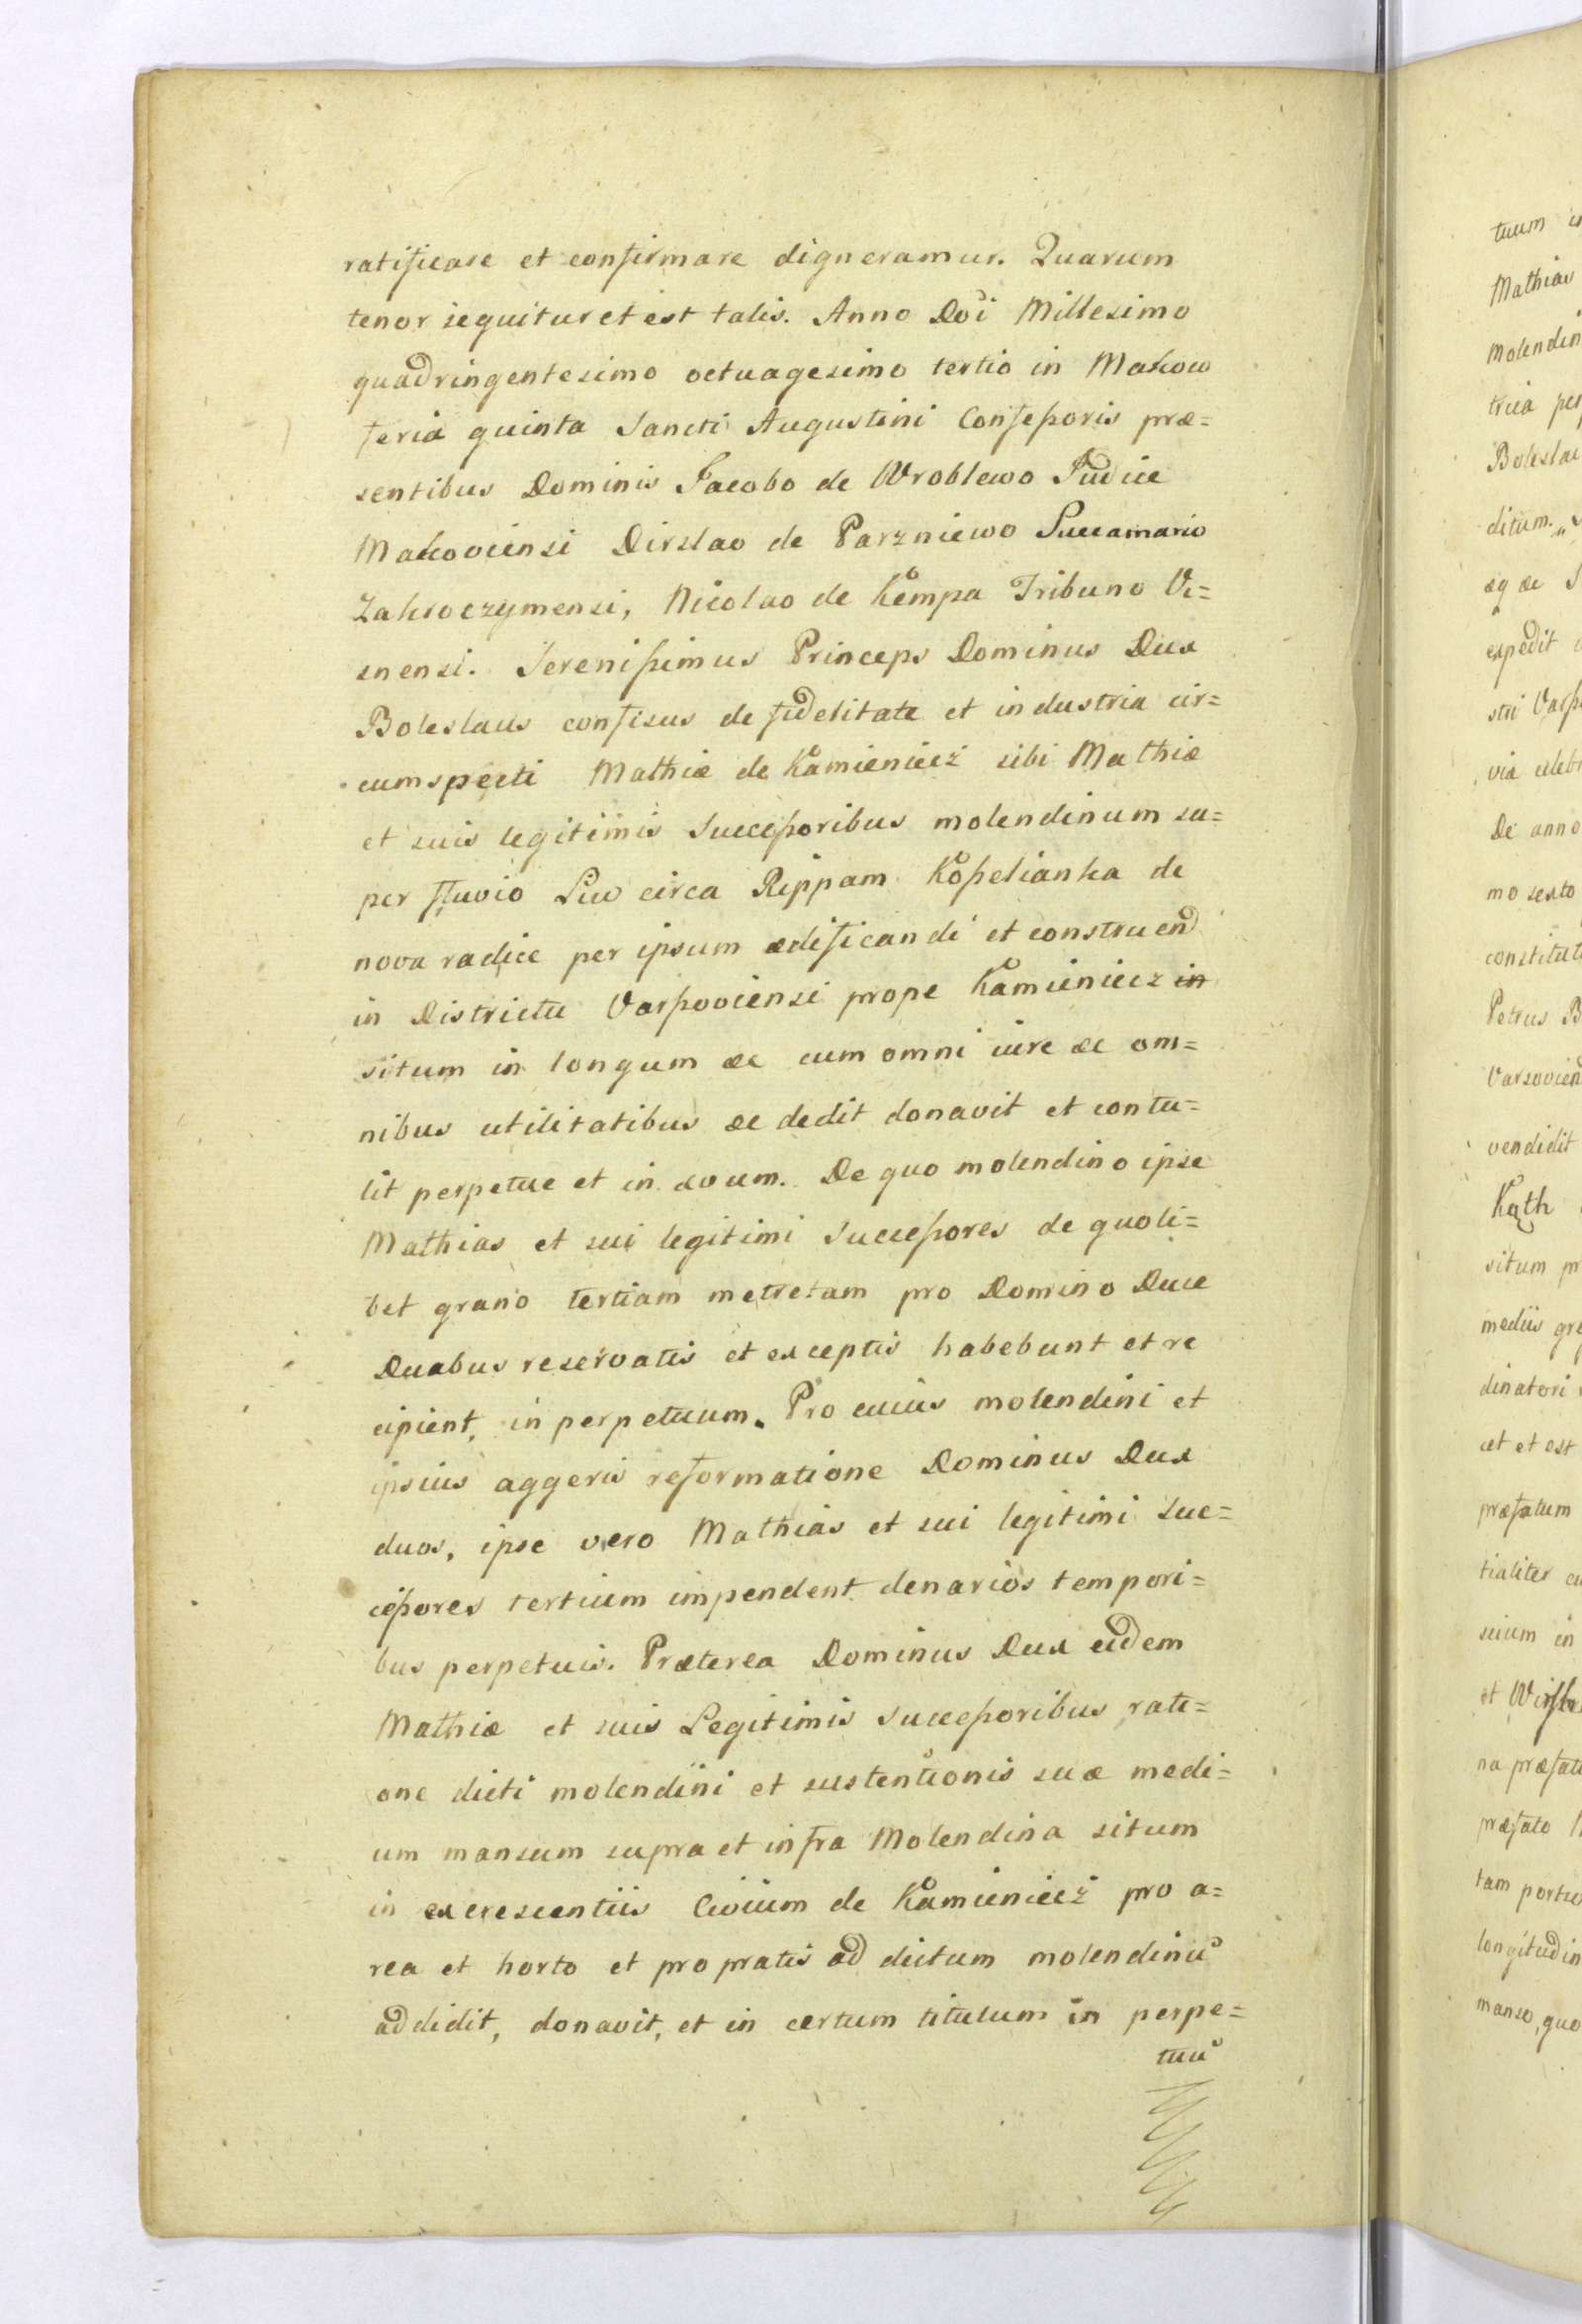 ratificare et confirmare digneramur. Quarum
tenor sequitur et est talis. Anno Doi Millesimo
quadringentesimo octuagesimo tertio in Makow
feria quinta Sancti Augustini Confeßoris præ=
sentibus Dominis Jacobo de Wroblewo Judice
Makoviensi Dirslao de Parzniewo Succamario
Zakroczymensi, Nicolao de Kempa Tribuno Vi=
snensi. Serenißimus Princeps Dominus Dux
Boleslaus confisus de fidelitate et industria cir=
cumspecti Mathiæ de Kamieniecz sibi Mathiæ
et suis legitimis Succeßoribus molendinum su=
per fluvio Liw circa Rippam Koßelianka de
nova radice per ipsum ædificandi et construend
in Districtu Varßoviensi prope Kamieniecz in
situm in longum ac cum omni iure ac om=
nibus utilitatibus ac dedit donavit et contu=
lit perpetue et in ævum. De quo molendino ipse
Mathias et sui legitimi Succeßores de quoli=
bet grano tertiam metretam pro Domino Duce
Duabus reservatis et exceptis habebunt et re
cipient, in perpetuum. Pro cuius molendini et
ipsius aggeris reformatione Dominus Dux
duos, ipse vero Mathias et sui legitimi Suc=
ceßores tertium impendent denarios tempori=
bus perpetuis. Præterea Dominus Dux eidem
Mathiæ et suis Legitimis Succeßoribus rati=
one dicti molendini et sustentionis suæ medi=
um mansum supra et infra Molendina situm
in excrescentiis Civium de Kamieniecz pro a=
rea et horto et pro pratis ad dictum molendinu
addidit, donavit, et in certum titulum in perpe=
tuu
tuum
Mathias
Molendin
Boleslai
ditum.
expedit
De anno
mo sexto
constitut
Petrus B
Varsovien
vendidit
Kath
situm
mediis
dinatori
cet et est
præfatum
tialiter
suum in
præfato
longitudin
manso, quo